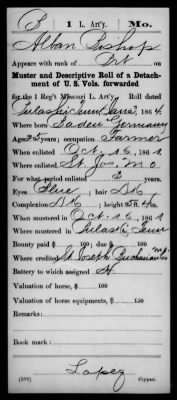 B 1 L. Art'y. Mo.
Alban Bishop
Appears with rank of Prt on
Muster and Descriptive Roll of a Detachment
of U. S. Vols. forwarded
for the 1 Reg't Missouri L. Art'y. Roll dated
Pulaski Tenn 186 4.
Where born Baden Germany
Age 35 years; occupation Farmer
When enlisted Oct. 186
Where enlisted St. Jos. Mo
For what period enlisted 3 years.
Eyes Blue; hair Dk
Complexion Dk; height 5 ft. in.
When mustered in Oct. 186
Where mustered in Pulaski Tenn
Bounty paid $ 100; due $ 100
Where credited St Joseph Buchanan
Battery to which assigned H
Valuation of horse, $ 100
Valuation of horse equipments, $ 100
Remarks:
Book mark:
Lopez
(339) Copyist.